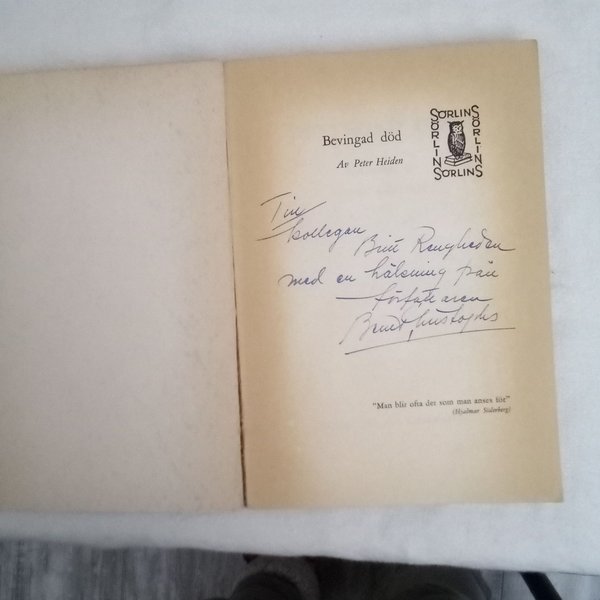 Bevingad död
Av Peter Heiden
SÖRLINS
SÖRLINS
SÖRLINS
SÖRLINS
Till
kollegan
Britt Rengheden
med en hälsning från
författaren
"Man blir ofta det som man anses för"
(Hjalmar Söderberg)